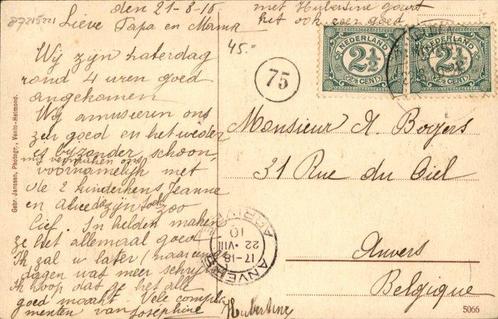 87215221
den 21-8-10
Lieve Papa en Mama
45.-
met Hubertine gaat
het ook zeer goed
Wij zijn zaterdag
rond 4 uren goed
aangekomen
Wij amuseren ons
zeer goed en het weder
is bezonder schoon
wij vermaken ons
voornamelijk met
de 2 kinderkens Jeanne
en zijn toch zoo
lief. In helden maken
ze het allemaal goed
Ik zal u later (naar een
dagen was meer schrijven
Ik hoop dat ge het alle
goed maakt Vele compli-
menten van Josephine
Hubertine
75
NEDERLAND
2½
(2½ CENT)
NEDERLAND
2½
(2½ CENT)
Monsieur A. Boeijers
31 Rue du Ciel
Anvers
Belgique
ANVERS
17-18
22-VIII
10
Gebr. Janssen, Photogr., Venlo-Helmond.
5066